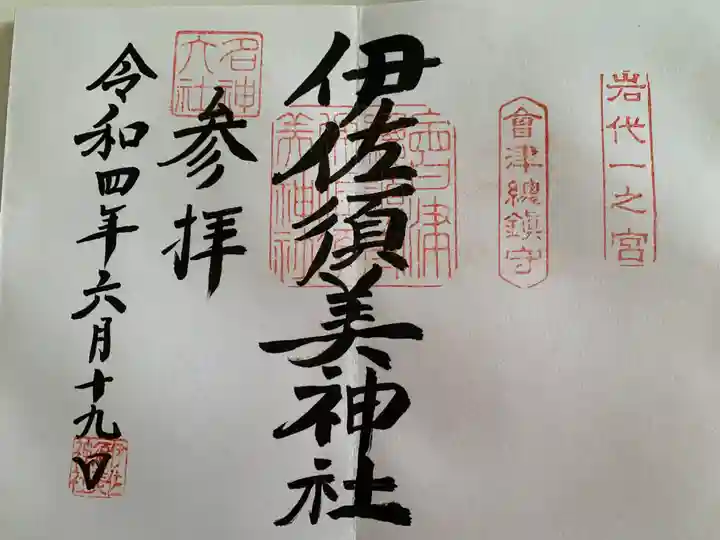 岩代一之宮
會津總鎮守
伊佐須美神社
参拝
名神大社
令和四年六月十九日